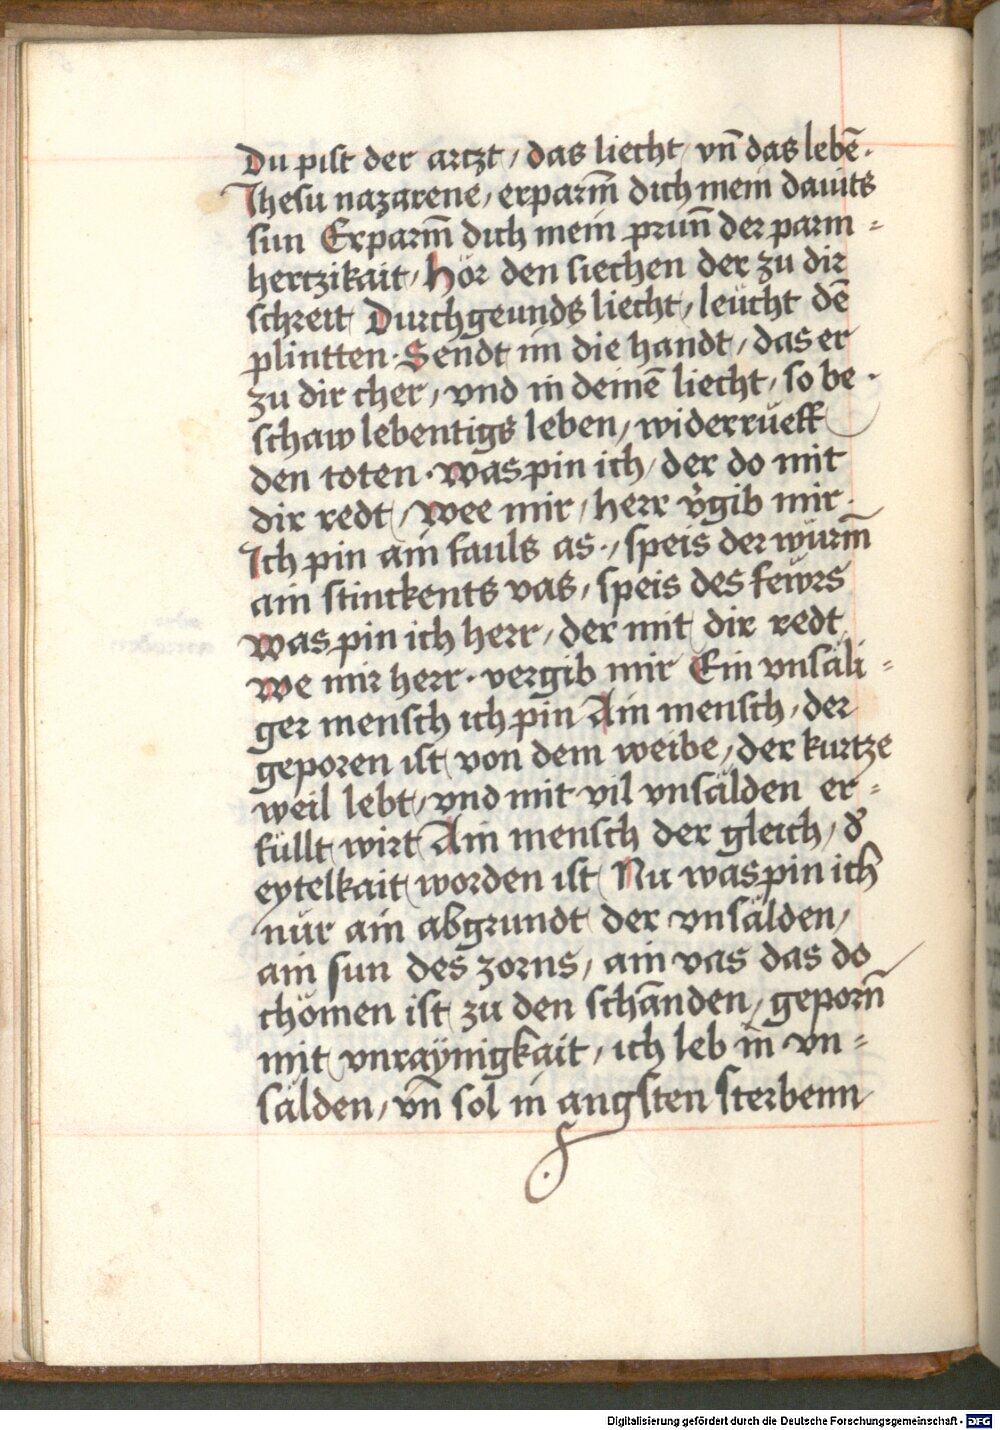 Du pist der artzt / das liecht / vn̄ das lebē ·
Jhesu nazarene / erparm̄ dich mein dauits
sun Erparm̄ dich mein prun̄ der parm =
hertzikait / Hör den siechen der zu dir
schreit Durchgeunds liecht / leücht dē
plintten · Sendt im die handt / das er
zu dir cher / vnd in deinē liecht / so be ·
schaw lebentigs leben / widerrüeff
den toten · Was pin ich / der do mit
dir redt / Wee mir / herr v̄gib mir ·
Ich pin ain fauls as · / speis der würm̄
ain stinckents vas / speis des fewrs
Was pin ich herr / der mit dir redt
We mir herr · vergib mir Ein vnsäli =
ger mensch ich pin Ain mensch / der
geporen ist von dem weibe / der kurtze
weil lebt / vnd mit vil vnsälden er =
füllt wirt Ain mensch der gleich / d᷑
eytelkait worden ist Nu was pin ich
nür ain abgrundt der vnsälden /
ain sun des zorns / ain vas das do
chömen ist zu den schanden / geporn̄
mit vnraÿnigkait / ich leb in̄ vn =
sälden / vn̄ sol in angsten sterbenn
Digitalisierung gefördert durch die Deutsche Forschungsgemeinschaft - DFG